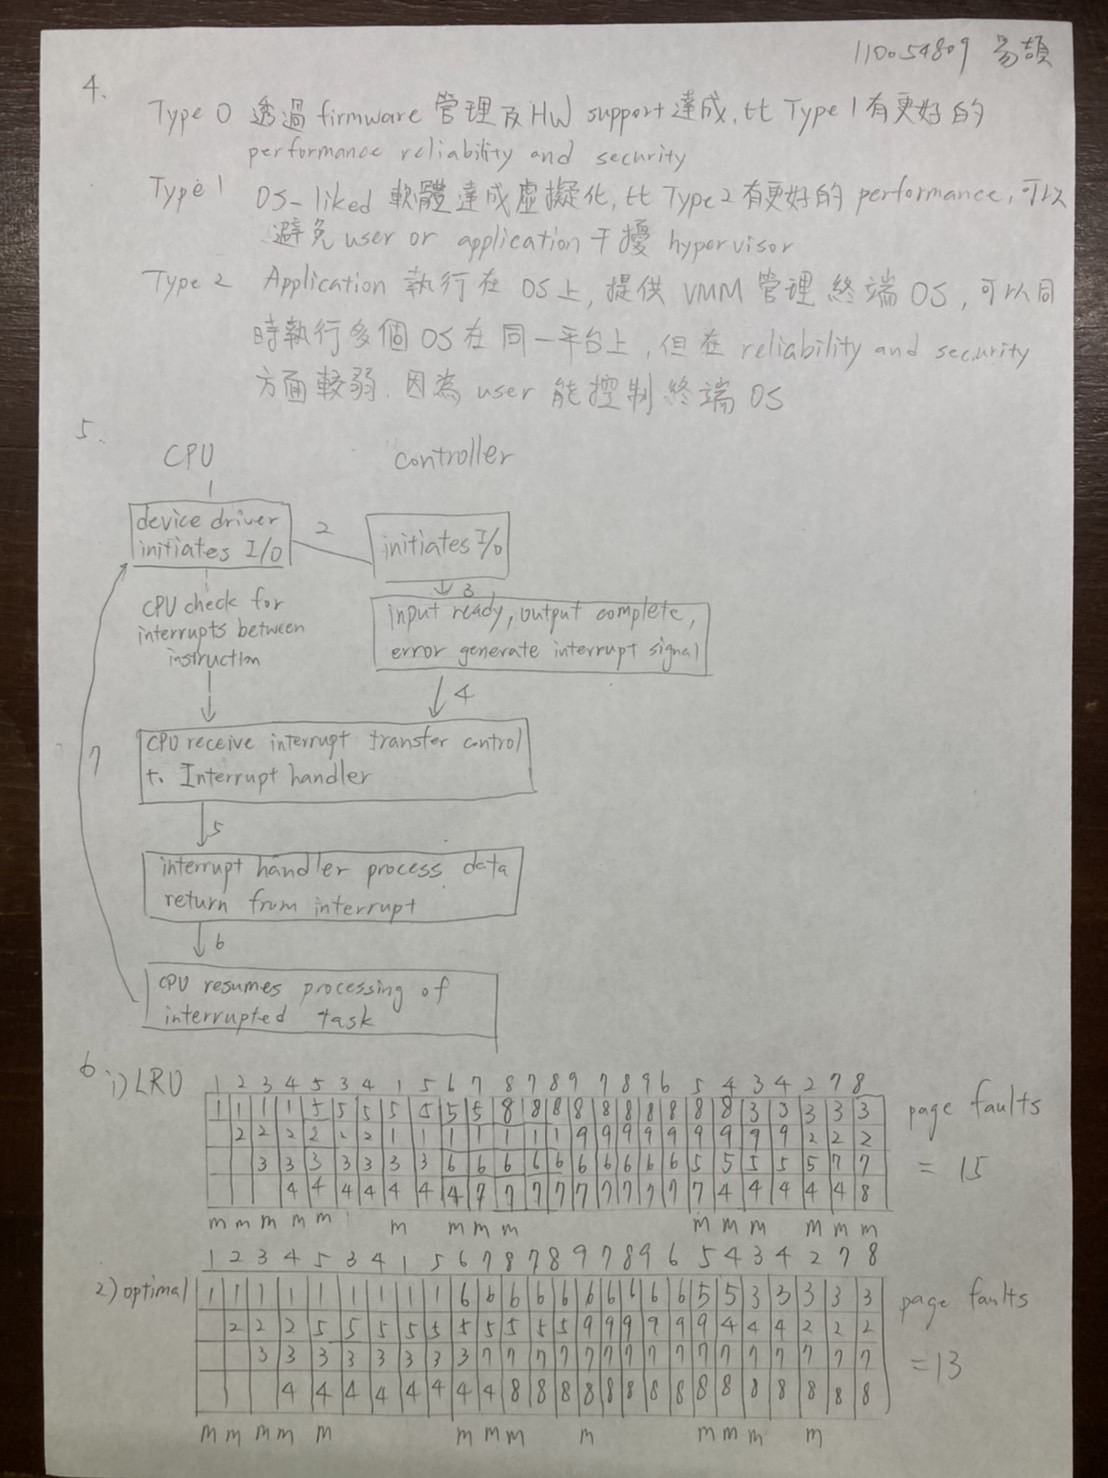 110054809 易頡
4.
Type 0 透過 firmware 管理及 HW support 達成, 比 Type 1 有更好的
performance reliability and security
Type 1 OS-liked 軟體達成虛擬化, 比 Type 2 有更好的 performance, 可以
避免 user or application 干擾 hypervisor
Type 2 Application 執行在 OS 上, 提供 VMM 管理終端 OS, 可以同
時執行多個 OS 在同一平台上, 但在 reliability and security
方面較弱. 因為 user 能控制終端 OS
5.
CPU controller
1
device driver 2
initiates I/O initiates I/O
3
CPU check for input ready, output complete,
interrupts between error generate interrupt signal
instruction
4
CPU receive interrupt transfer control
to Interrupt handler
7
5
interrupt handler process data
return from interrupt
6
CPU resumes processing of
interrupted task
6 i) LRU 1 2 3 4 5 3 4 1 5 6 7 8 7 8 9 7 8 9 6 5 4 3 4 2 7 8
1 1 1 1 5 5 5 5 5 5 5 8 8 8 8 8 8 8 8 8 8 3 3 3 3 3 page faults
2 2 2 2 2 2 1 1 1 1 1 1 1 9 9 9 9 9 9 9 9 9 2 2 2
3 3 3 3 3 3 3 6 6 6 6 6 6 6 6 6 6 5 5 5 5 5 7 7 = 15
4 4 4 4 4 4 4 7 7 7 7 7 7 7 7 7 7 4 4 4 4 4 8
m m m m m m m m m m m m m m m
1 2 3 4 5 3 4 1 5 6 7 8 7 8 9 7 8 9 6 5 4 3 4 2 7 8
2) optimal 1 1 1 1 1 1 1 1 1 6 6 6 6 6 6 6 6 6 6 5 5 3 3 3 3 3 page faults
2 2 2 5 5 5 5 5 5 5 5 5 5 9 9 9 9 9 9 4 4 4 2 2 2
3 3 3 3 3 3 3 3 7 7 7 7 7 7 7 7 7 7 7 7 7 7 7 7 = 13
4 4 4 4 4 4 4 4 8 8 8 8 8 8 8 8 8 8 8 8 8 8 8
m m m m m m m m m m m m m